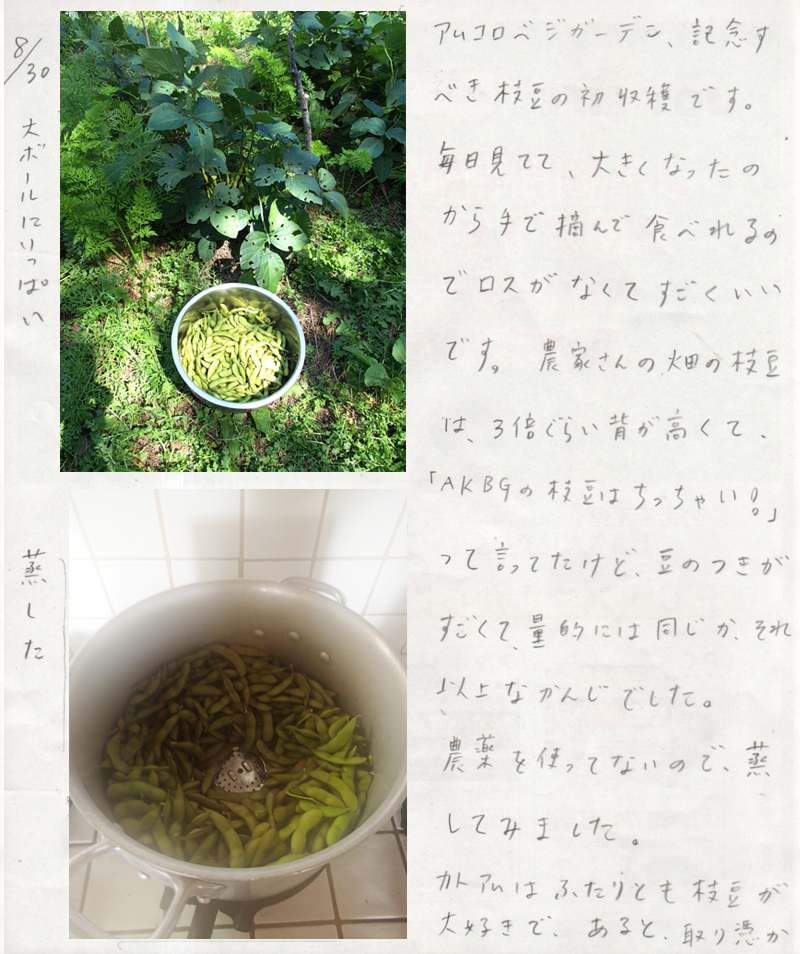 8/30
大ボールにいっぱい
蒸した
アムコロベジガーデン、記念す
べき枝豆の初収穫です。
毎日見てて、大きくなったの
から手で摘んで食べれるの
でロスがなくてすごくいい
です。農家さんの畑の枝豆
は、3倍ぐらい背が高くて、
「AKBGの枝豆はちっちゃい！」
って言ってたけど、豆のつきが
すごくて、量的には同じか、それ
以上なかんじでした。
農薬を使ってないので、蒸
してみました。
カトアムはふたりとも枝豆が
大好きで、あると、取り憑か